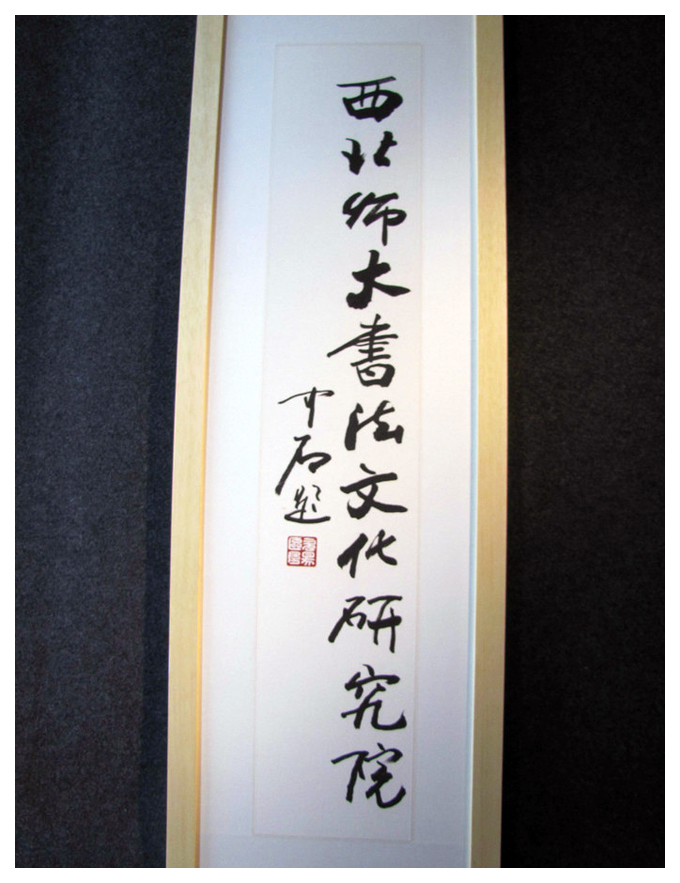 西北师大书法文化研究院
中石题